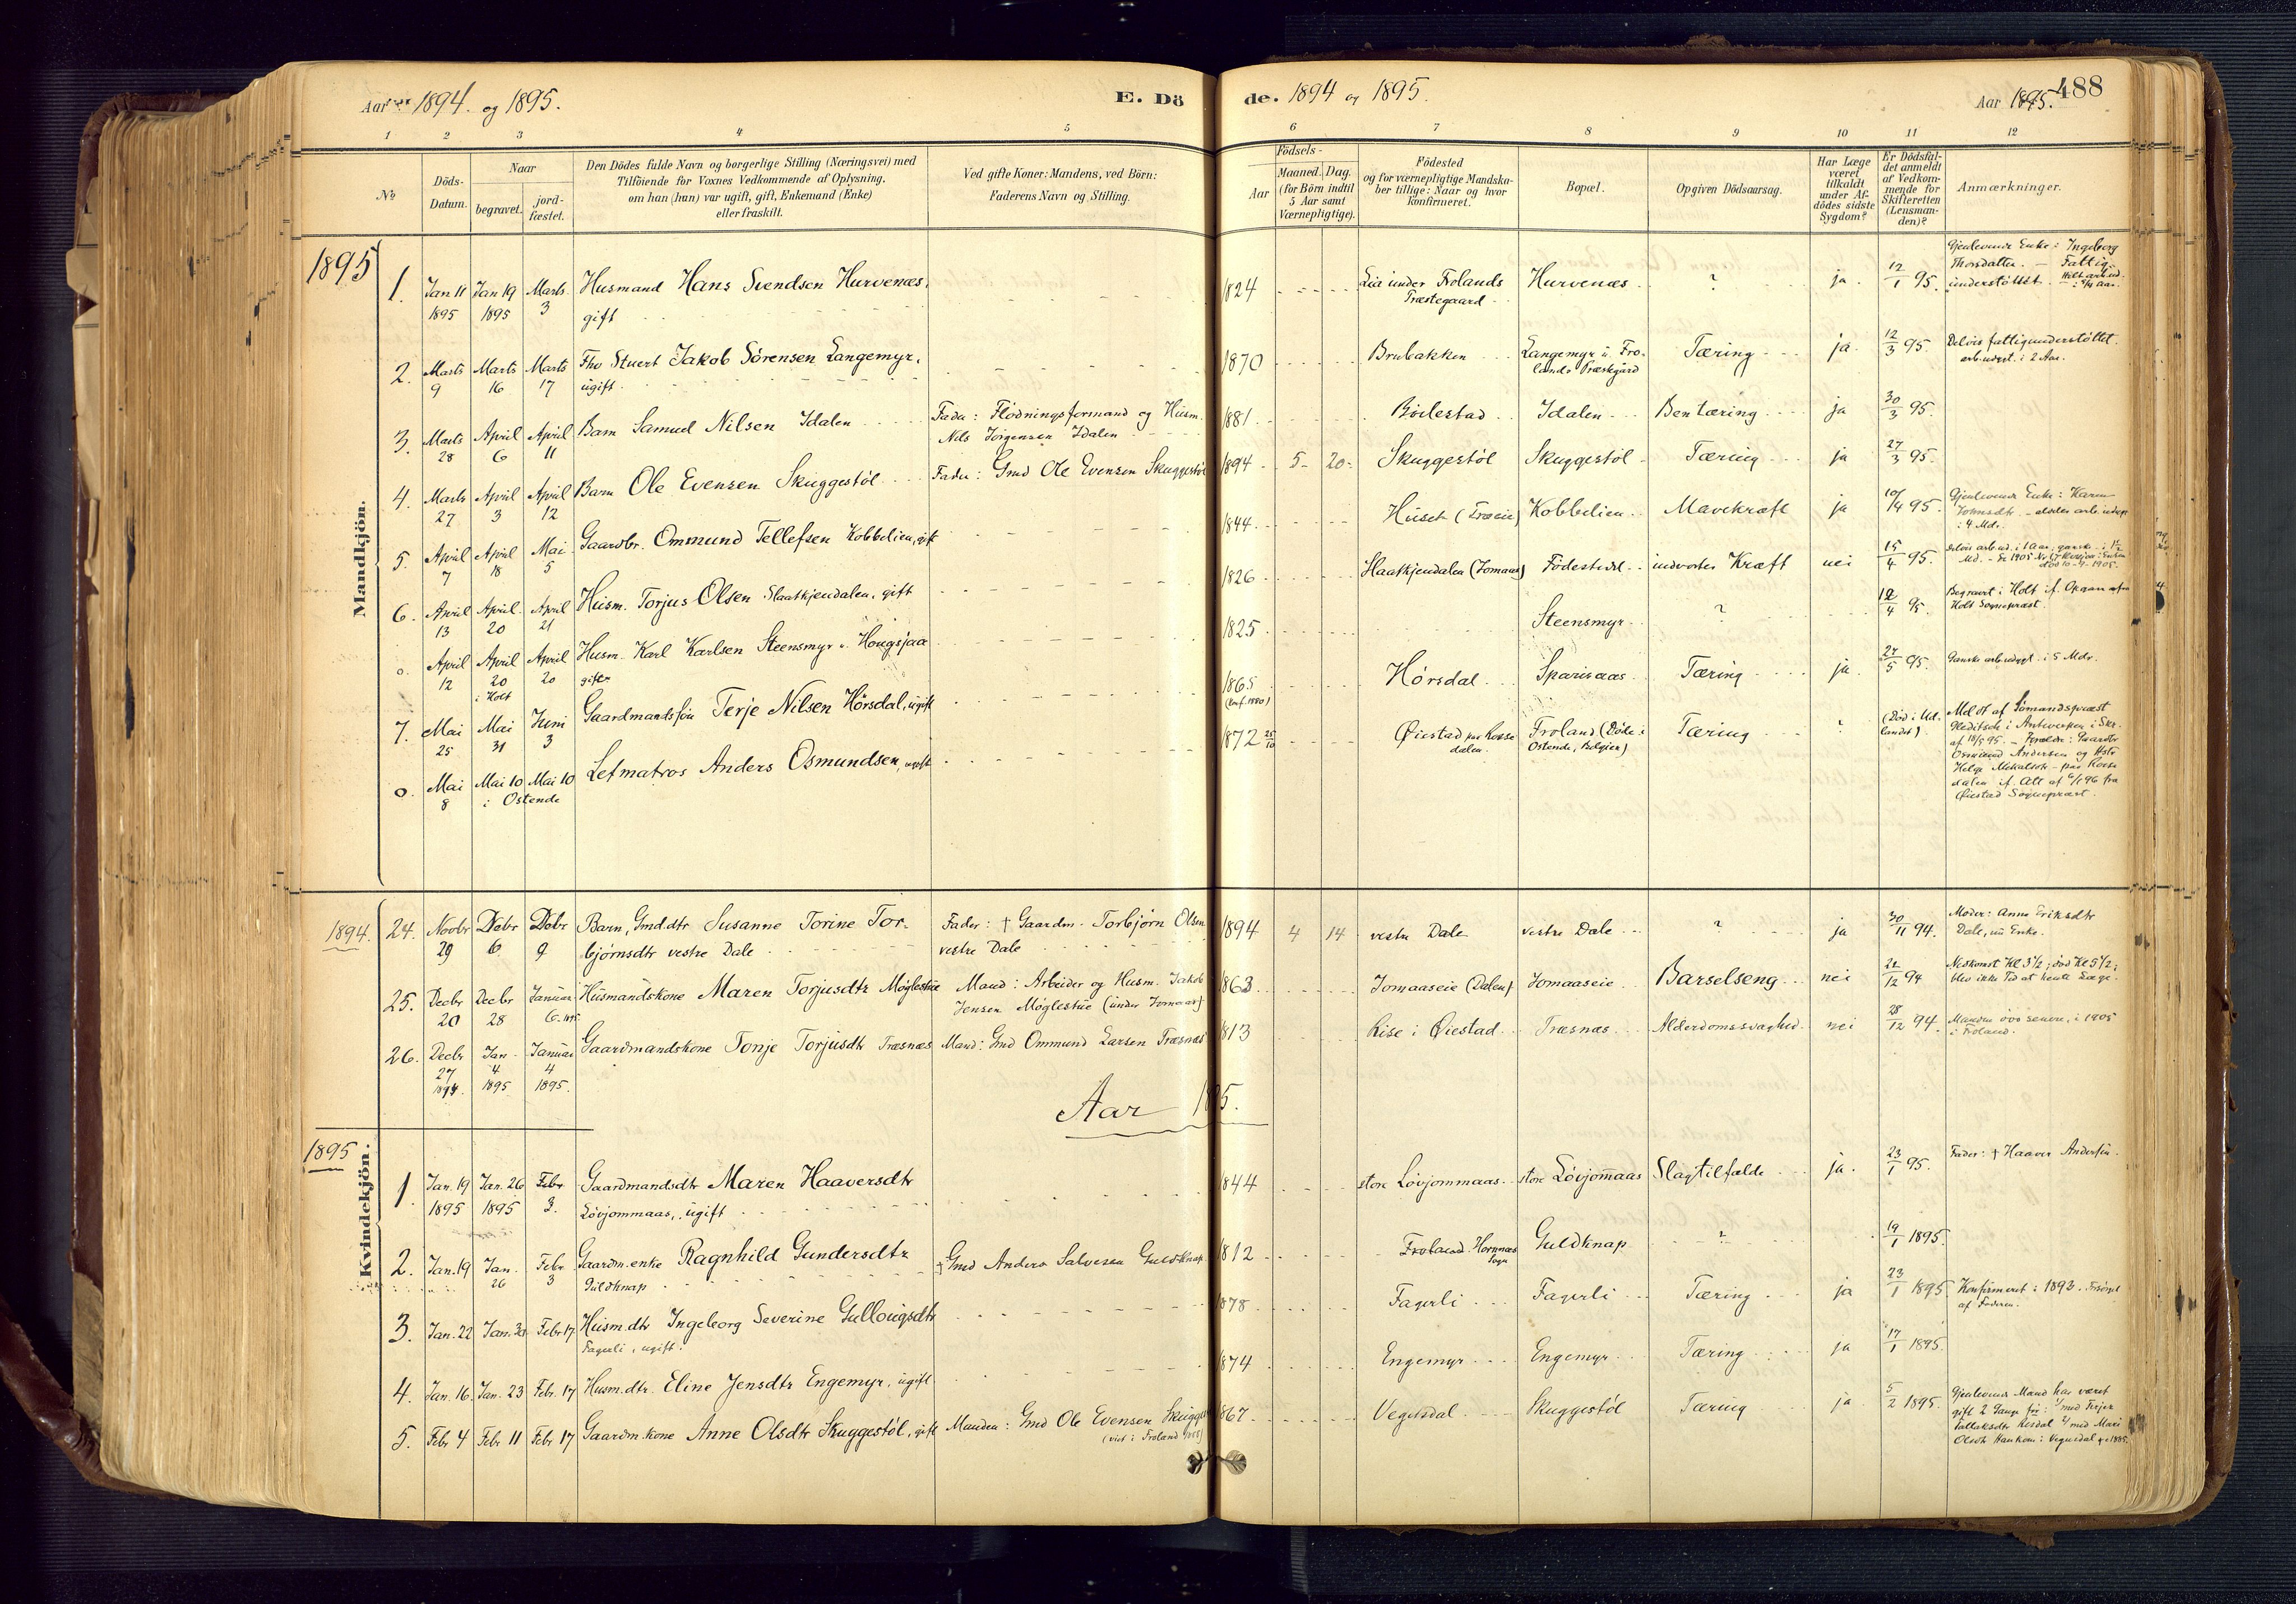 Aar 1894. og 1895.
E. Dö
de. 1894 og 1895.
Aar 1895.
488
1 2 3 4 5 6 7 8 9 10 11 12
No
Döds-Datum.
Naar
begravet.
jord-fæstet.
Den Dödes fulde Navn og borgerlige Stilling (Næringsvei) med
Tilföiende for Voxnes Vedkommende af Oplysning.
om han (hun) var ugift, gift, Enkemand (Enke)
eller fraskilt.
Ved gifte Koner: Mandens, ved Börn:
Faderens Navn og Stilling.
Födsels-
Aar
Maaned. Dag.
(for Börn indtil
5 Aar samt
Værnepligtige).
Födested
og for værnepligtige Mandska-
ber tillige: Naar og hvor
konfirmeret.
Bopæl.
Opgiven Dödsaarsag.
Har Læge
været
tilkaldt
under Af-
dödes sidste
Sygdom?
Er Dödsfal-
det anmeldt
af Vedkom-
mende for
Skifteretten
(Lensman-
den)?
Anmærkninger.
Mandkjön.
1895
1. Jan 11 1895 Jan 19 1895 Marts 3 Husmand Hans Svendsen Hurvenæs, gift 1824 Lia under Frolands Præstegaard Hurvenæs ? ja 12/1 95. Gjenlevende Enke: Ingeborg Thorsdatter. - Fattig-understøttet.
2. Marts 9 Marts 16 Marts 17 Fhv Stuert Jakob Sörensen Langemyr, ugift 1870 Brubakken Langemyr u. Frolands Præstgård Tæring ja 12/3 95. Delvis fattigunderstöttet. arb.udygt. i 2 Aar.
3. Marts 28 April 6 April 11 Barn Samuel Nilsen Idalen Fader: Flödningsformand og Husm. Nils Jörgensen Idalen 1881 Bölestad Idalen Bentæring ja 30/3 95.
4. Marts 27 April 3 April 12 Barn Ole Evensen Skuggestöl Fader: Gmd Ole Evensen Skuggestöl 1894 5 20 Skuggestöl Skuggestöl Tæring ja 27/3 95.
5. April 7 April 18 Mai 5 Gaardbr. Ommund Tellefsen Kobbelien, gift 1844 Huset (Træeie) Kobbelien Mavekræft ja 10/4 95. Gjenlevende Enke: Karen Johnsdtr i 4 Mdr.
6. April 13 April 20 April 21 Husm. Torjus Olsen Slaatkjendalen, gift 1826 Haatkjendalen (Jomaas) Födested indvortes Kræft nei 15/4 95.
o. April 12 April 20 i Holt April 20 Husm. Karl Karlsen Steensmyr u. Hougsjaa gift 1825 Steensmyr ? 12/4 95. Begravet i Holt if. Opgave fra Holt Sognepræst.
7. Mai 25 Mai 31 Juni 3 Gaardmandssön Terje Nilsen Hörsdal, ugift 1865 (konf. 1880) Hörsdal Sparisaas Tæring ja. 27/5 95. Ganske arb.udygt. i 5 Mdr.
o. Mai 8 Mai 10 Mai 10 i Ostende Letmatros Anders Osmundsen, ugift 1872 25/10 Öiestad paa Rossedalen Froland (Døde i Ostende, Belgien) Tæring ? (Død i Udlandet) Meldt af Sömandspræst Gleditsch i Antwerpen i Skr. af 18/5 95 - Forældre: Gaardbr Osmund Andersen og Hstr Helge Mikalsdtr - paa Rossedalen if. Att af 6/1 96 fra Öiestad Sognepræst.
Kvindekjön.
1894.
24. Novbr 29 Decbr 6 Decbr 9 Barn, Gmd.dtr Susanne Torine Torbjörnsdtr vestre Dale Fader: † Gaardm. Torbjörn Olsen vestre Dale 1894 4 14 vestre Dale vestre Dale ? ja 30/11 94. Moder: Anne Eriksdtr Dale, nu Enke.
25. Decbr 20 Decbr 28 Januar 6. 1895 Husmandskone Maren Torjusdtr Möglestue Mand: Arbeider og Husm. Jakob Jensen Möglestue (under Jomaas) 1863 Jomaaseie (Dalen) Jomaaseie Barselseng nei 21/12 94 Nedkomst Kl 3½; död Kl 5½; blev ikke Tid at hente Læge.
26. Decbr 27 1894. Jan 4 1895 Januar 4 1895. Gaardmandskone Tonje Torjusdtr Træsnæs Mand: Gmd Ommund Larsen Træsnæs 1813 Rise i Öiestad Træsnæs Alderdomssvaghed nei 28/12 94. Manden död senere, i 1905 i Froland.
Aar 1895.
1895
1. Jan. 19 1895 Jan. 26 1895 Febr 3. Gaardmandsdtr Maren Haaversdtr Lövjommaas, ugift 1844 store Lövjommaas store Lövjom̄aas Slagtilfælde ja. 23/1 95. Fader: † Haaver Andersen
2. Jan. 19 Jan. 26 Febr 3 Gaardm.enke Ragnhild Gundersdtr Guldknap † Gmd Anders Salvesen Guldknap 1812 Froland, Hornnæs Sogn Guldknap ? 19/1 1895
3. Jan. 22 Jan. 30 Febr 17 Husm.dtr Ingeborg Severine Gullougsdtr Fagerli, ugift. 1878 Fagerli Fagerli Tæring ja 23/1 1895 Konfirmeret i 1893. Forsörget af Faderen.
4. Jan. 16. Jan. 23 Febr. 17 Husm.dtr. Eline Jensdtr Engemyr, ugift 1874 Engemyr Engemyr Tæring ja 17/1 1895.
5. Febr 4 Febr 11 Febr 17 Gaardm.kone Anne Olsdtr Skuggestöl, gift Manden: Gmd Ole Evensen Skuggestöl (viet i Froland) 1867 Vegusdal Skuggestöl Tæring ja 5/2 1895. Gjenlevende Mand har været gift 2 Gange för: 1/ med Terjer Tallaksdtr Risdal 2/ med Mari Olsdtr Haukom i Vegusdal